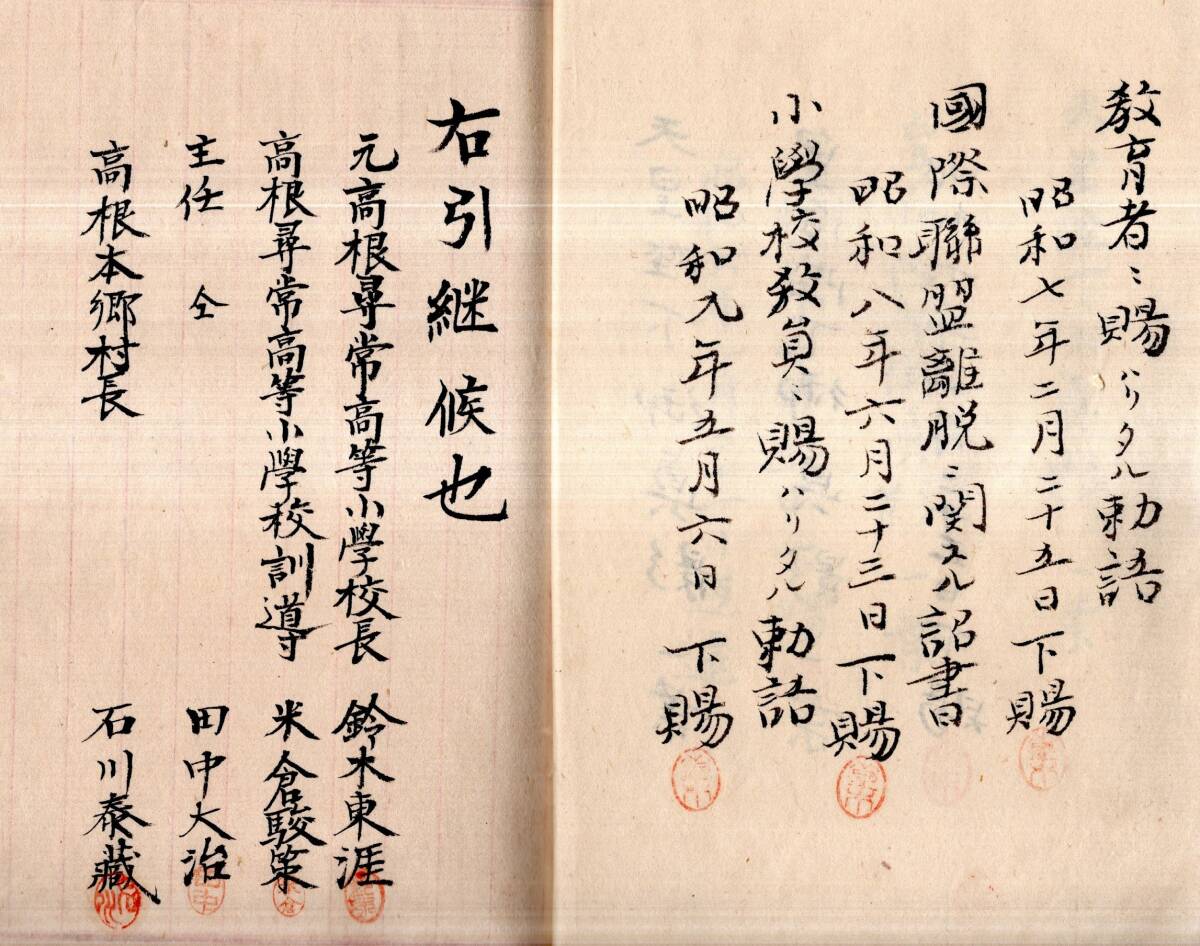 教育者ニ賜ハリタル勅語
昭和七年二月二十五日下賜
國際聯盟離脱ニ関スル詔書
昭和八年六月二十三日下賜
小學校教員ニ賜ハリタル勅語
昭和九年五月六日下賜
右引継候也
元高根尋常高等小學校長 鈴木東涯
高根尋常高等小學校訓導 米倉駿策
主任 仝 田中大治
高根本郷村長 石川泰藏